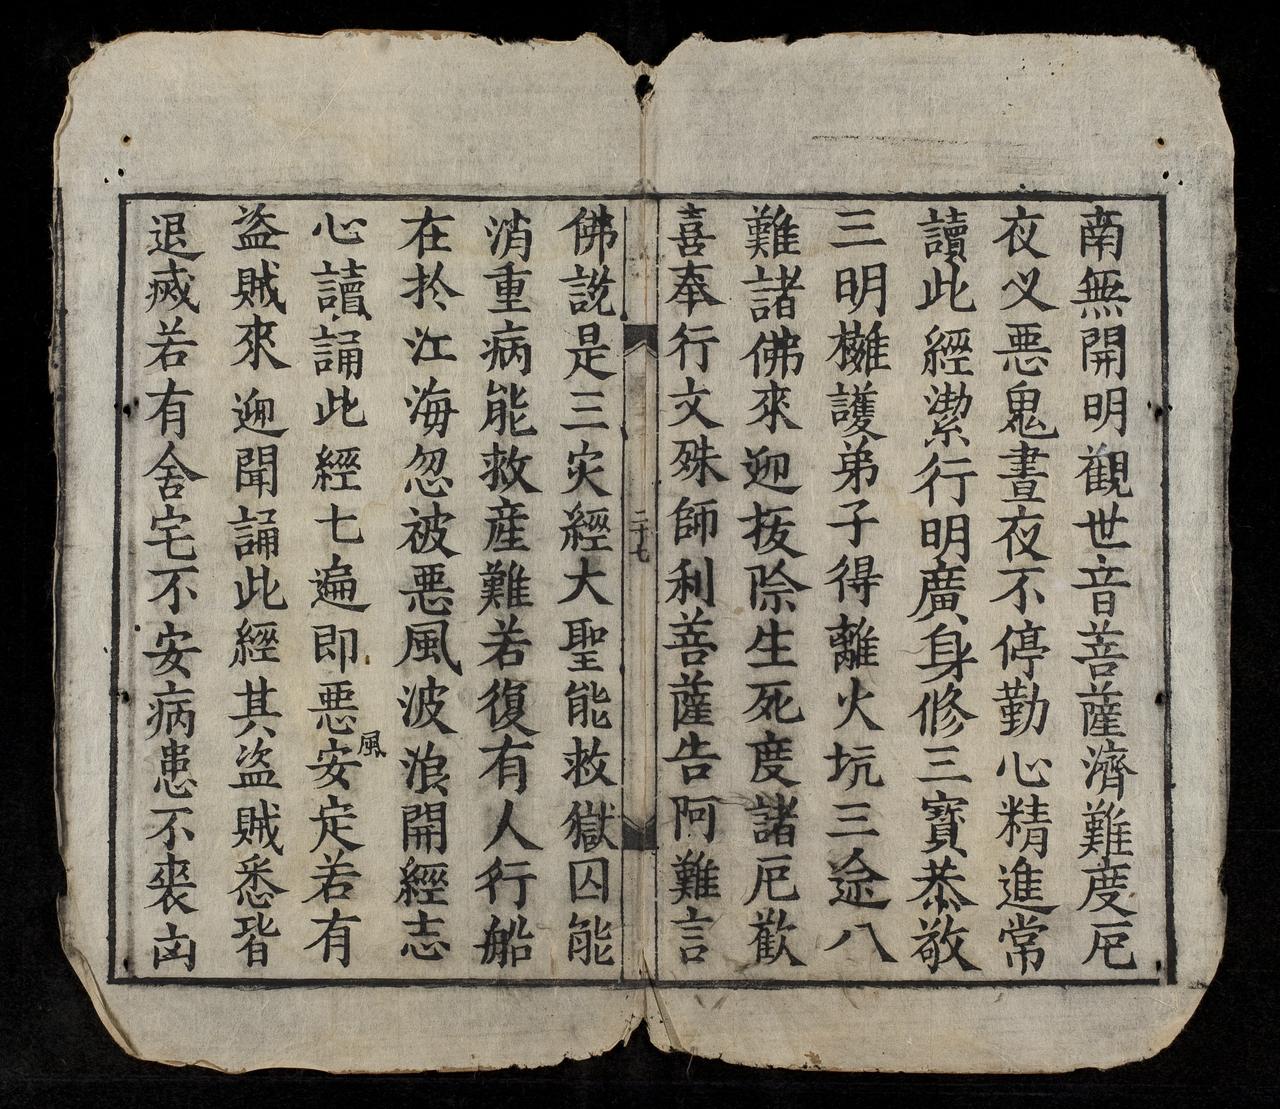 南無開明觀世音菩薩濟難度厄
夜义悪鬼晝夜不停勤心精進常
讀此經潔行明廣身修三寳恭敬
三明擁護弟子得離火坑三途八
難諸佛來迎拔除生死度諸厄歡
喜奉行文殊師利菩薩告阿難言
二十七
佛說是三灾經大聖能救獄囚能
消重病能救産難若復有人行船
在於江海忽被悪風波浪開經志
心讀誦此經七遍即悪安定若有
風
盗賊來迎聞誦此經其盗賊悉皆
退㓕若有舍宅不安病患不衰凶